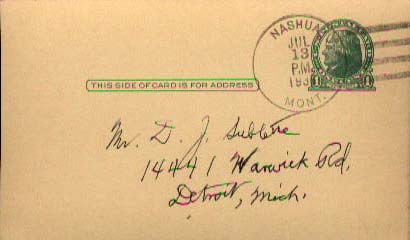 NASHUA
JUL
13
P.M.
193
MONT.
THIS SIDE OF CARD IS FOR ADDRESS
Mr. D. J.
14441 Warwick Rd,
Detroit, Mich.